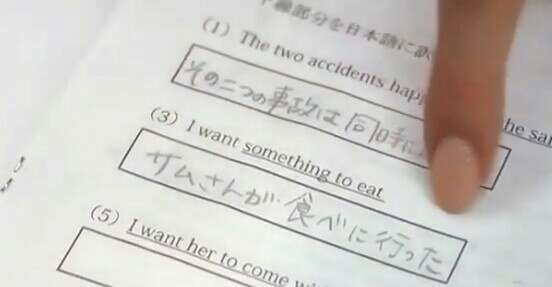 下線部分を日本語に訳
(1) The two accidents hap he sa
その二つの事故は同時に
(3) I want something to eat
サムさんが食べに行った
(5) I want her to come wi